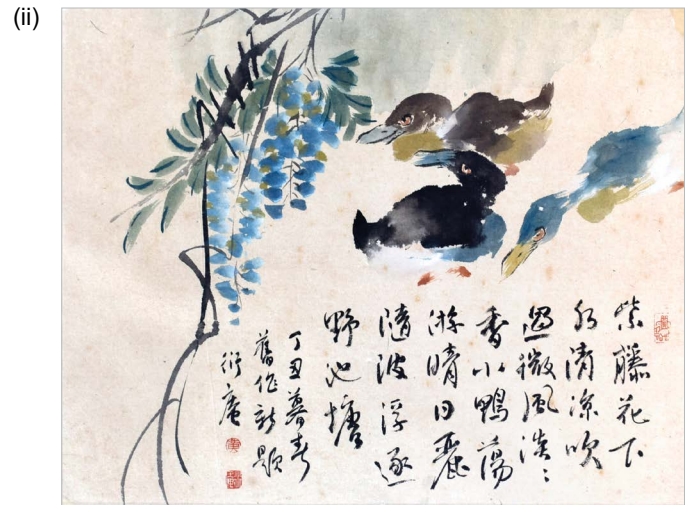 (ii)
紫藤花下
水清凉吹
過微風淡〻
香小鴨蕩
游晴日麗
隨波浮逐
野池塘
丁丑暮春
舊作新題
衍庵